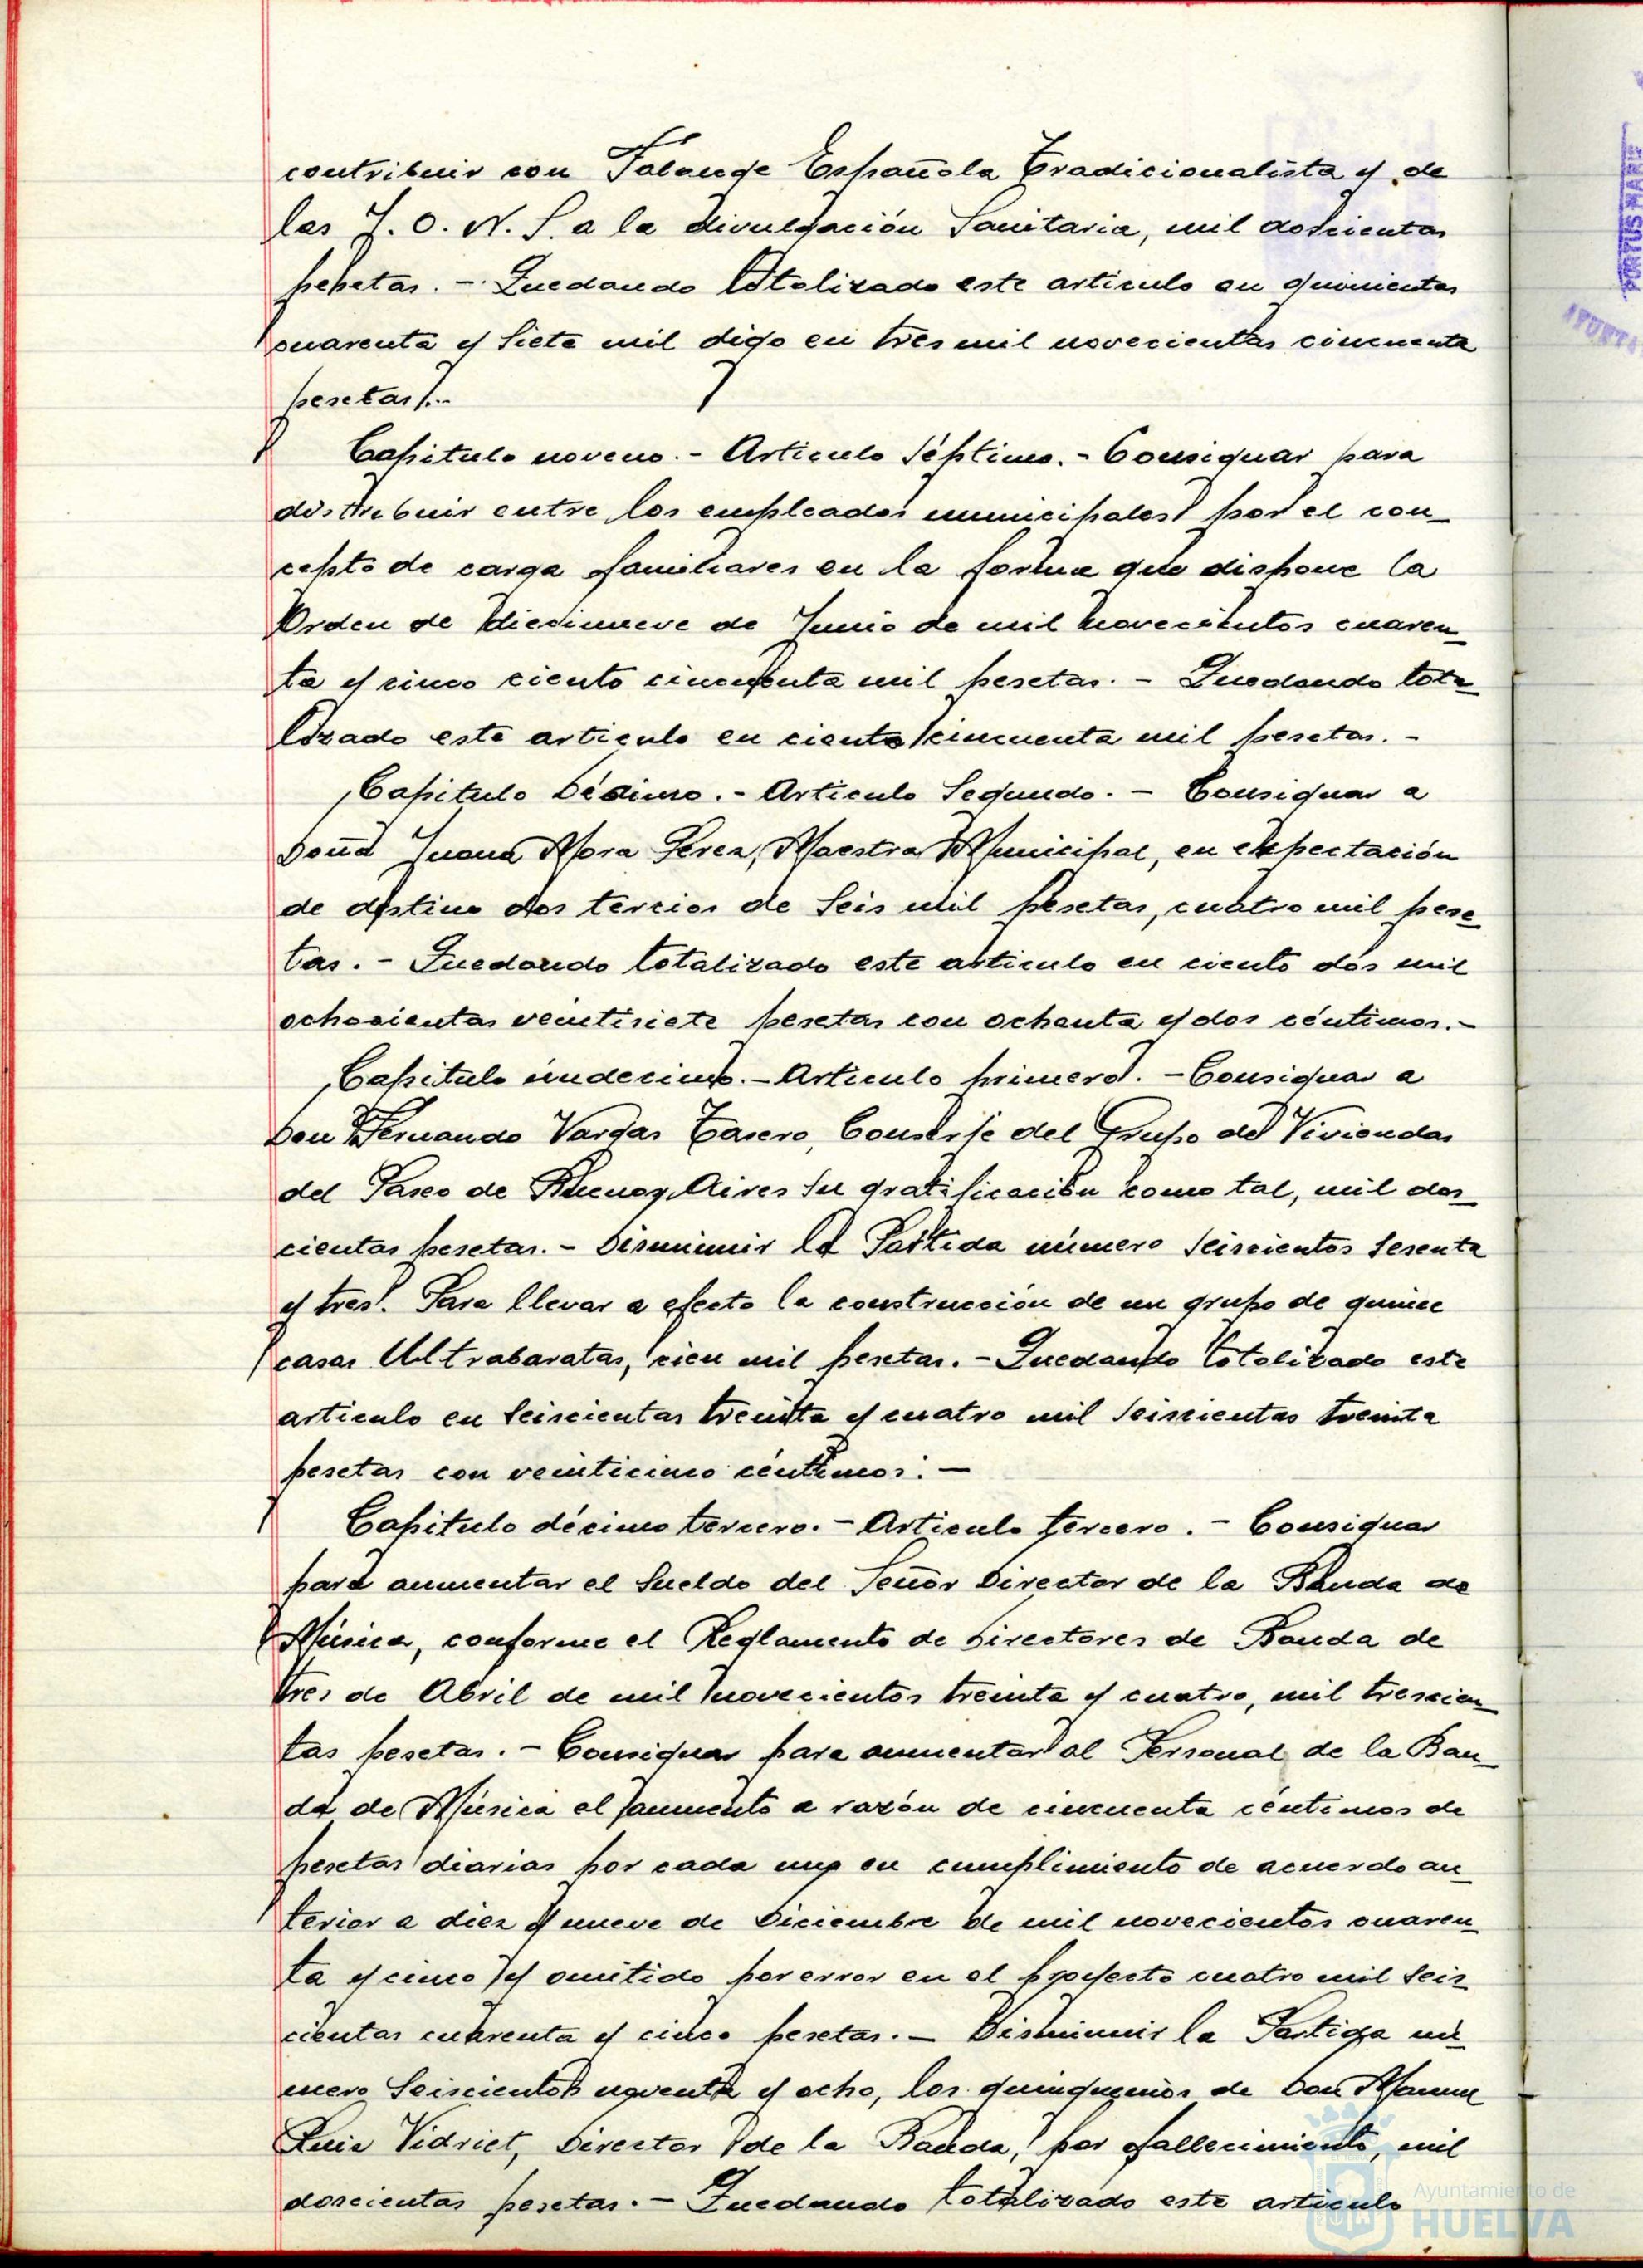 contribuir con Falange Española Tradicionalista y de
las J. O. N. S. a la divulgación Sanitaria, mil doscientas
pesetas. - Quedando totalizado este articulo en quinientas
cuarenta y siete mil digo en tres mil novecientas cincuenta
pesetas.-
Capitulo noveno. - Articulo Séptimo. - Consignar para
distribuir entre los empleados municipales por el con_
cepto de carga familiares en la forma que dispone la
Orden de diecinueve de Junio de mil novecientos cuaren_
ta y cinco ciento cincuenta mil pesetas. - Quedando tota_
lizado este articulo en ciento cincuenta mil pesetas. -
Capitulo Décimo. - Articulo Segundo. - Consignar a
Doña Juana Mora Perez, Maestra Municipal, en expectación
de destino dos tercios de Seis mil pesetas, cuatro mil pese_
tas. - Quedando totalizado este articulo en ciento dos mil
ochocientas veintisiete pesetas con ochenta y dos céntimos. -
Capitulo úndecimo. - Articulo primero. - Consignar a
Don Fernando Vargas Casero, Conserje del Grupo de Viviendas
del Paseo de Buenos Aires su gratificación como tal, mil dos_
cientas pesetas. - Disminuir la Partida número Seiscientos Sesenta
y tres. Para llevar a efecto la construcción de un grupo de quince
casas Ultrabaratas, cien mil pesetas. - Quedando totalizado este
articulo en Seiscientas treinta y cuatro mil Seiscientas treinta
pesetas con veinticinco céntimos. -
Capitulo décimo tercero. - Articulo tercero. - Consignar
para aumentar el Sueldo del Señor Director de la Banda de
Música, conforme el Reglamento de Directores de Banda de
tres de Abril de mil novecientos treinta y cuatro, mil trescien_
tas pesetas. - Consignar para aumentar al Personal de la Ban_
da de Música el aumento a razón de cincuenta céntimos de
pesetas diarias por cada uno en cumplimiento de acuerdo an_
terior a diez y nueve de Diciembre de mil novecientos cuaren_
ta y cinco y omitido por error en el proyecto cuatro mil Seis_
cientas cuarenta y cinco pesetas. - Disminuir la Partida nú_
mero Seiscientos noventa y ocho, los quinquenios de Don Manuel
Ruiz Vidriet, Director de la Banda, por fallecimiento, mil
doscientas pesetas. - Quedando totalizado este articulo
Ayuntamiento de
HUELVA
PORTUS MARIS
AYUNTA